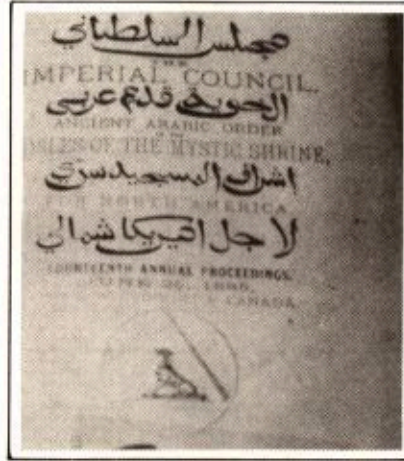 مجلس السلطاني
IMPERIAL COUNCIL.
قديم عربي
ANCIENT ARABIC ORDER
OF THE MYSTIC SHRINE,
اشراف المسجيد سري
FOR NORTH AMERICA
لا جل اميريكا شمالي
FOURTEENTH ANNUAL PROCEEDINGS.
CANADA